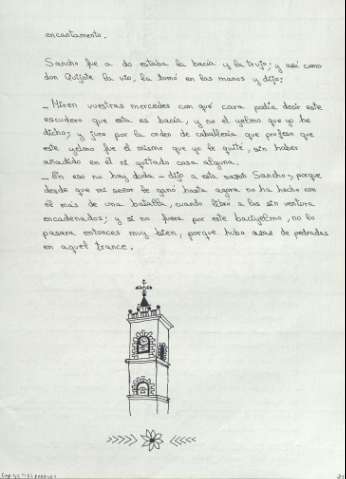 encantamento.
Sancho fue a do estaba la bacía y la trujo; y así como
don Quijote la vio, la tomó en las manos y dijo:
– Miren vuestras mercedes con qué cara podía decir este
escudero que esta es bacía, y no el yelmo que yo he
dicho; y juro por la orden de caballería que profeso que
este yelmo fue el mismo que yo le quité, sin haber
añadido en él ni quitado cosa alguna.
– En eso no hay duda – dijo a esta sazón Sancho –, porque
desde que mi señor le ganó hasta agora no ha hecho con
él más de una batalla, cuando libró a los sin ventura
encadenados; y si no fuera por este baciyelmo, no lo
pasara entonces muy bien, porque hubo asaz de pedradas
en aquel trance.